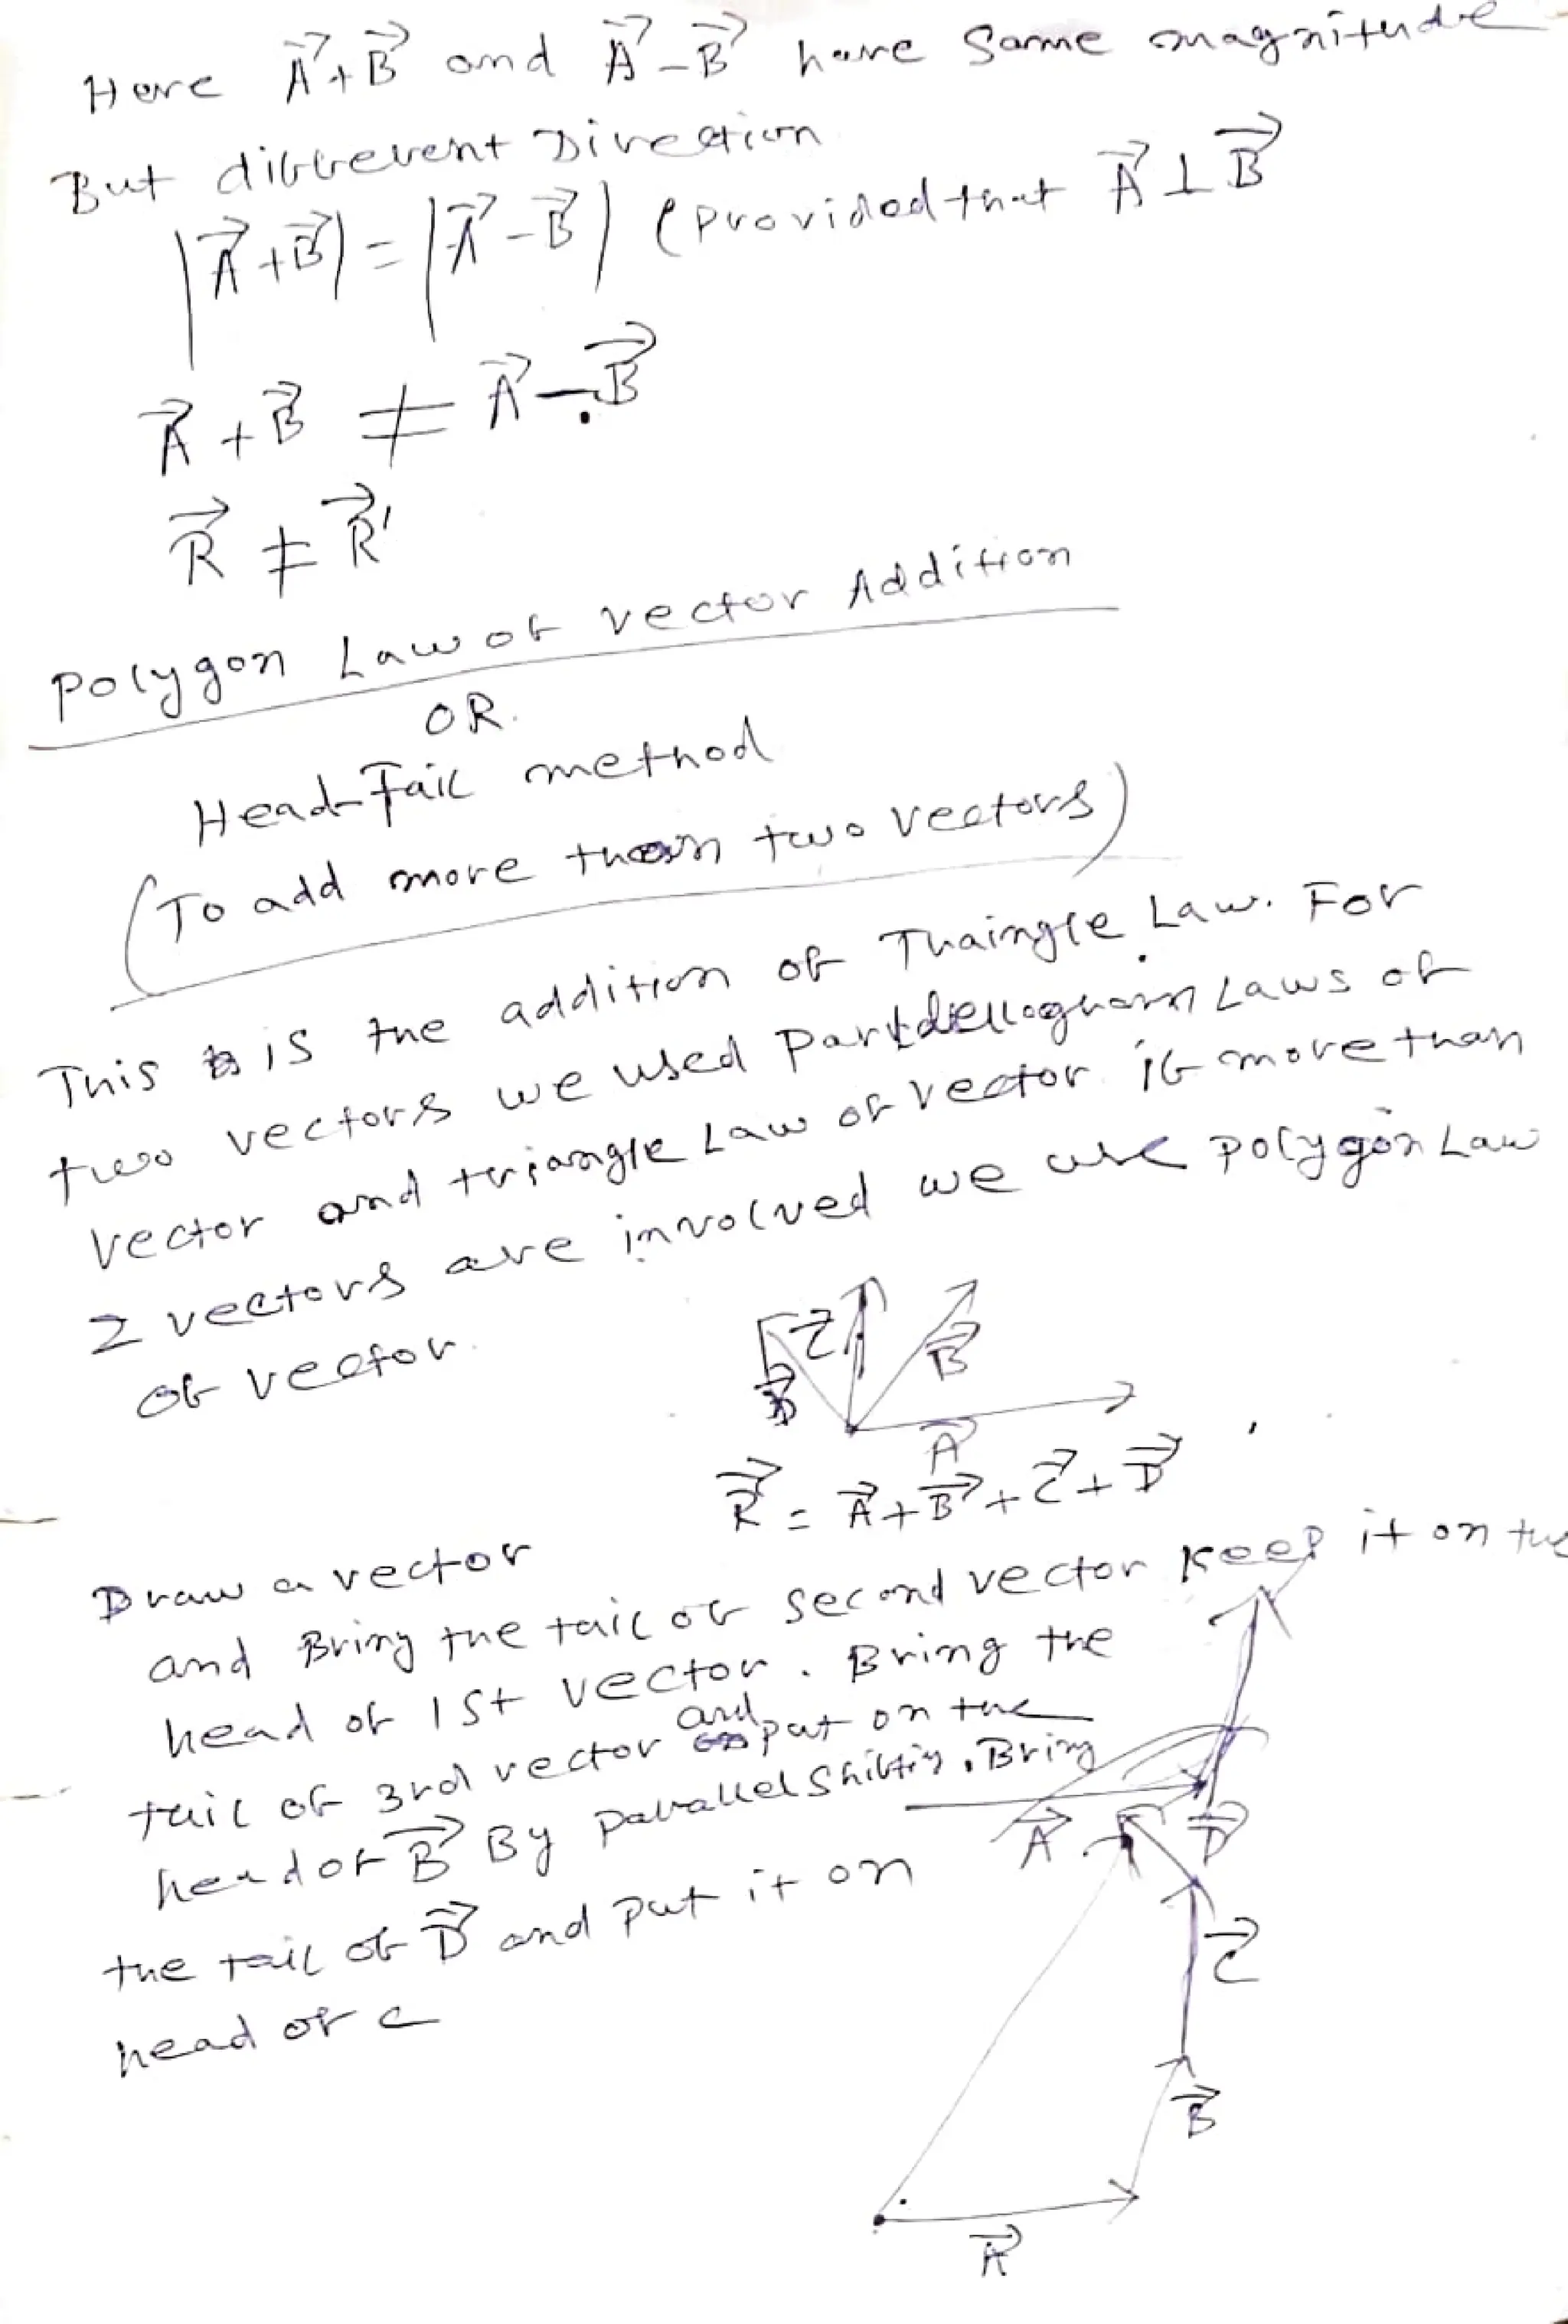 Here A⃗+B⃗ and A⃗-B⃗ have same magnitude
But different Direction
|A⃗+B⃗| = |A⃗-B⃗| (Provided that A⃗ ⊥ B⃗
A⃗+B⃗ ≠ A⃗-B⃗
R⃗ ≠ R⃗'
Polygon Law of vector Addition
OR.
Head-Tail method
(To add more than two vectors)
This is the addition of Thaingle Law. For
two vectors we used Laws of
vector and triangle Law of vector if more than
2 vectors are involved we use polygon Law
of vector.
C⃗
B⃗
D⃗
A⃗
R⃗ = A⃗+B⃗+C⃗+D⃗
Draw a vector
and Bring the tail of second vector keep it on the
head of 1st vector. Bring the
tail of 3rd vector and put on the
head of B⃗ By parallel shifting. Bring
the tail of D⃗ and put it on
head of c
A⃗
D⃗
C⃗
B⃗
A⃗